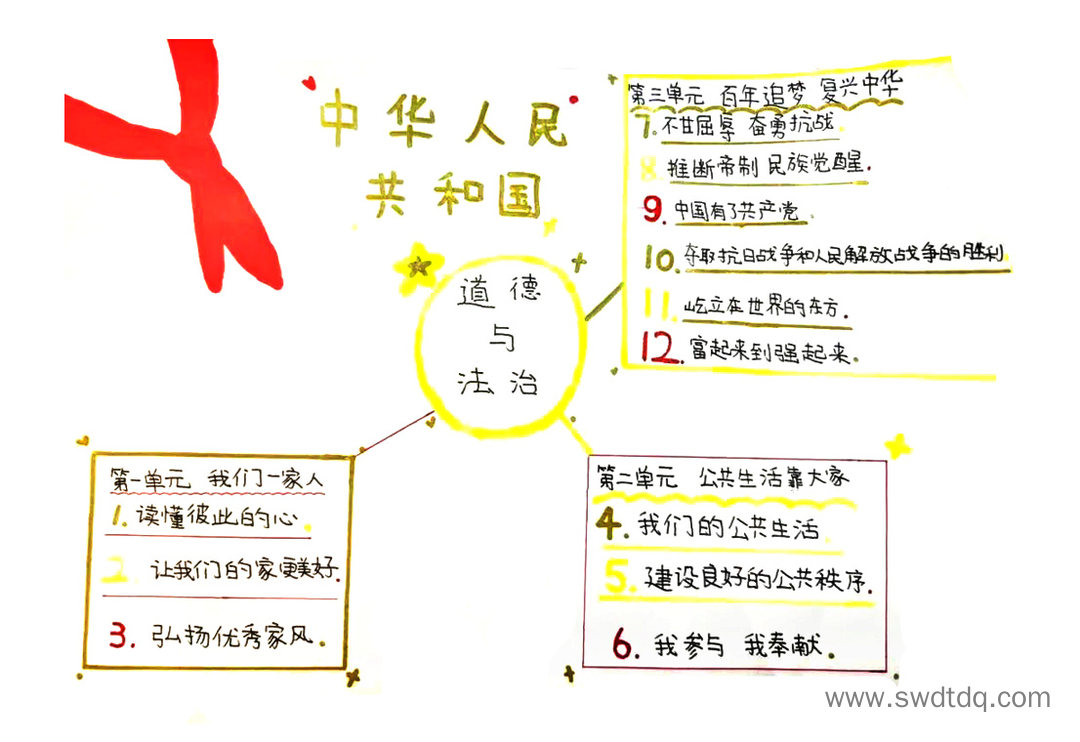 中华人民
共和国
道德
与
法治
第一单元 我们一家人
1. 读懂彼此的心.
2. 让我们的家更美好.
3. 弘扬优秀家风.
第二单元 公共生活靠大家
4. 我们的公共生活.
5. 建设良好的公共秩序.
6. 我参与 我奉献.
第三单元 百年追梦 复兴中华
7. 不甘屈辱 奋勇抗战.
8. 推断帝制 民族党醒.
9. 中国有了共产党.
10. 夺取抗日战争和人民解放战争的胜利.
11. 屹立在世界的东方.
12. 富起来到强起来.
www.swdtdq.com